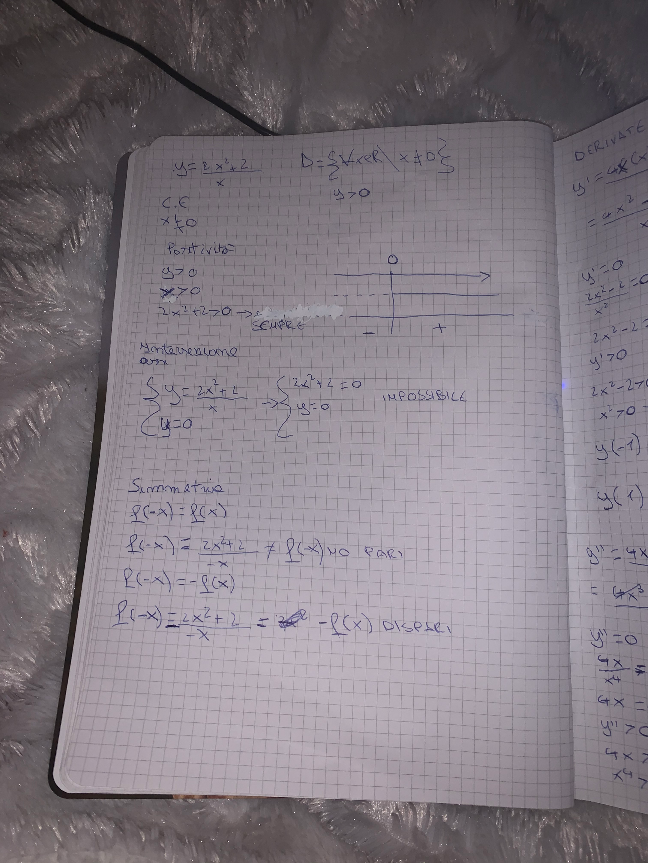 y = 2x²+2 / x
D={∀x∈R \ x≠0}
y>0
C.E
x≠0
Positività
y>0
x>0
2x²+2>0 →
SEMPRE
0
- +
Intersezione
assi
{ y = 2x²+2 / x → { 2x²+2=0 IMPOSSIBILE
y=0 y=0
Simmetria
f(-x)=f(x)
f(-x) = 2x²+2 / -x ≠ f(-x) NO PARI
f(-x) = -f(x)
f(-x) = 2x²+2 / -x = -f(x) DISPARI
DERIVATE
y'=0
y'>0
y(-1)
y(1)
y''=0
4x / x⁴ =
4x =
y''>0
4x >
x⁴ >